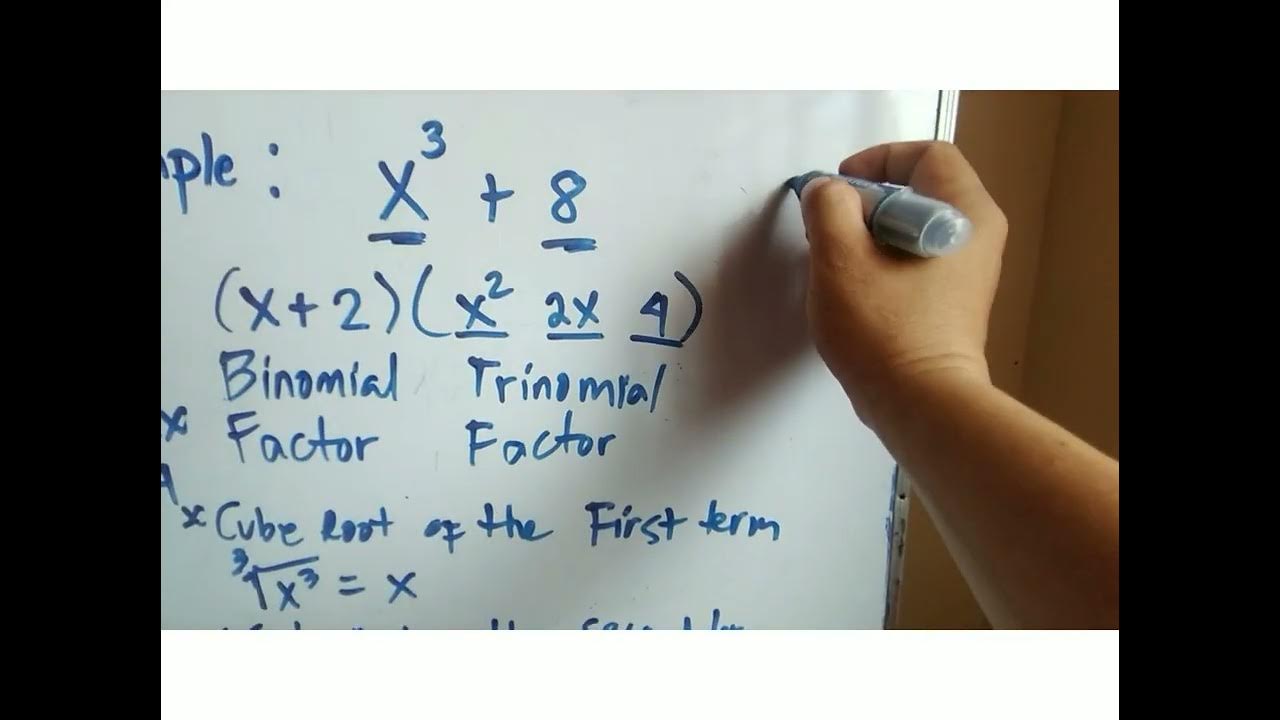 x³ + 8
(x+2)(x² 2x 4)
Binomial Trinomial
Factor Factor
x Cube Root of the First term
³√x³ = x
the